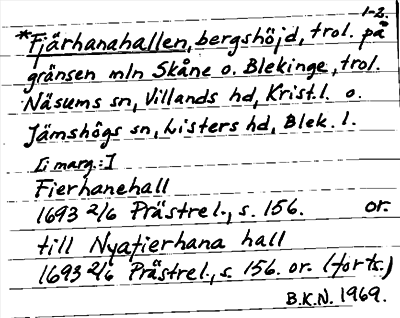 1-2.
*Fjärhanahallen, bergshöjd, trol. på
gränsen mln Skåne o. Blekinge, trol.
Näsums sn, Villands hd, Krist.l. o.
Jämshögs sn, Listers hd, Blek. l.
[i marg.:]
Fierhanehall
1693 2/6 Prästrel., s. 156. or.
till Nyafierhana hall
1693 2/6 Prästrel., s. 156. or. (forts.)
B.K.N. 1969.